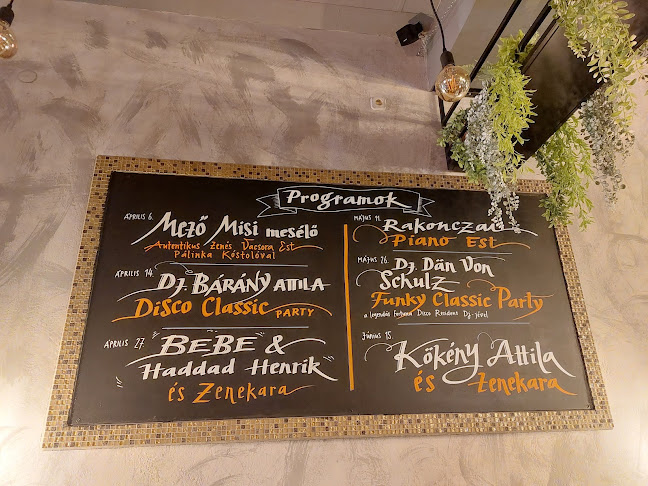 Programok
Április 6.
Mező Misi mesélő
Autentikus Zenés Vacsora Est
Pálinka Kóstolóval
Április 14.
Dj. BÁRÁNY ATTILA
Disco Classic PARTY
Április 27.
BEBE &
Haddad Henrik
és Zenekara
Május 11.
Rakonczai
Piano Est
Május 26.
Dj. Dän Von
Schulz
Funky Classic Party
a legendás Fortuna Disco Residens Dj-jével
Június 15.
Kökény Attila
és Zenekara